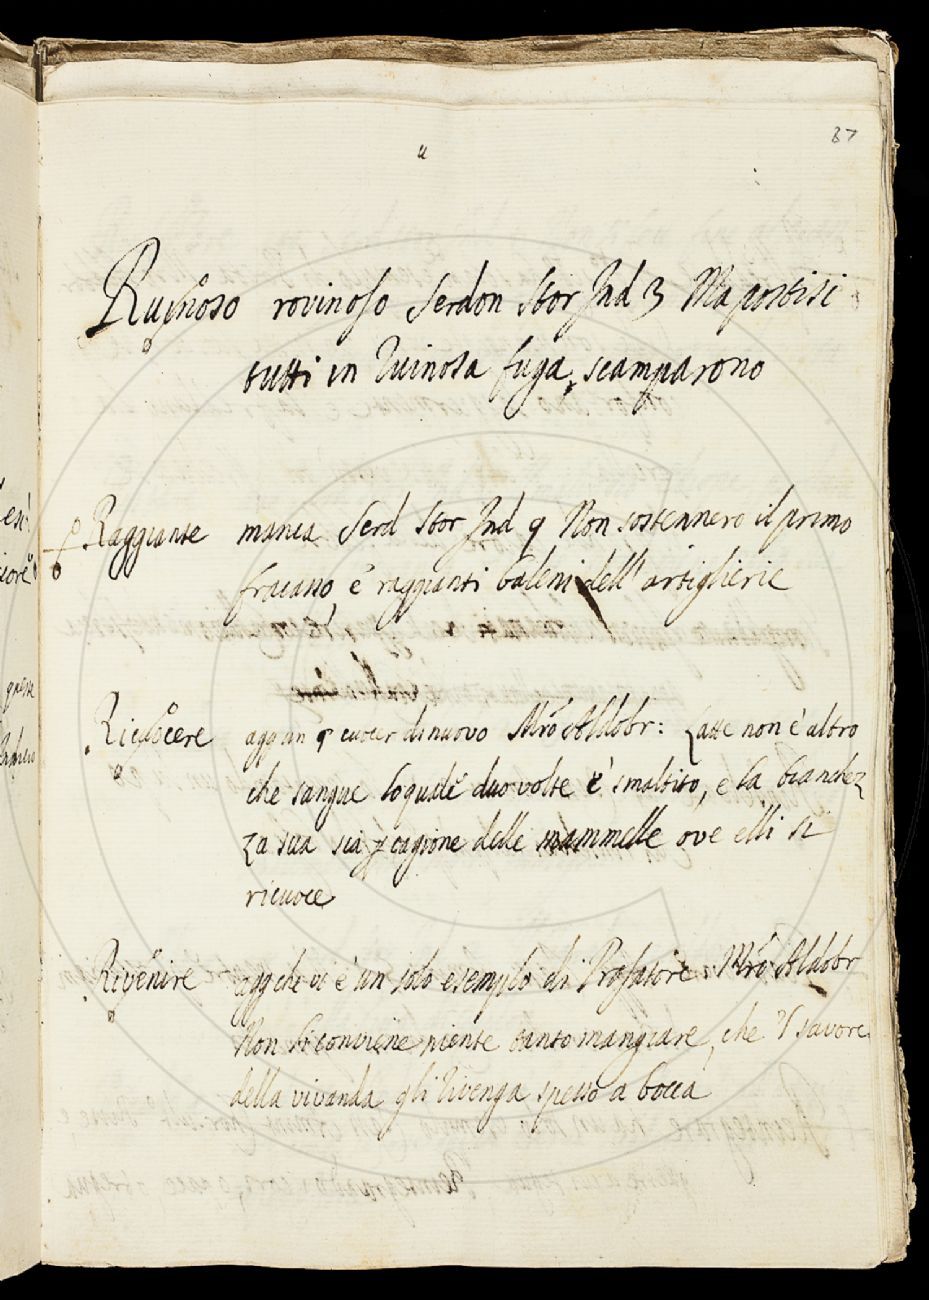 37
u
Ruinoso rovinoso Serdon Stor Ind 3 Ma postisi
tutti in ruinosa fuga, scamparono
esi
Raggiante manca Serd Stor Ind 9 Non sostennero il primo
fracasso, e raggianti baleni dell'artiglierie
Ricuocere agg un cuocer di nuovo Mro Aldobr: Latte non è altro
che sangue loquale duo volte è smaltito, e la bianchez
za sua sia p cagione delle mammelle ove elli si
ricuoce
Rivenire agg che vi è un solo esempio di Prosatore Mro Aldobr
Non si conviene niente tanto mangiare, che 'l savore
della vivanda gli rivenga spesso a bocca